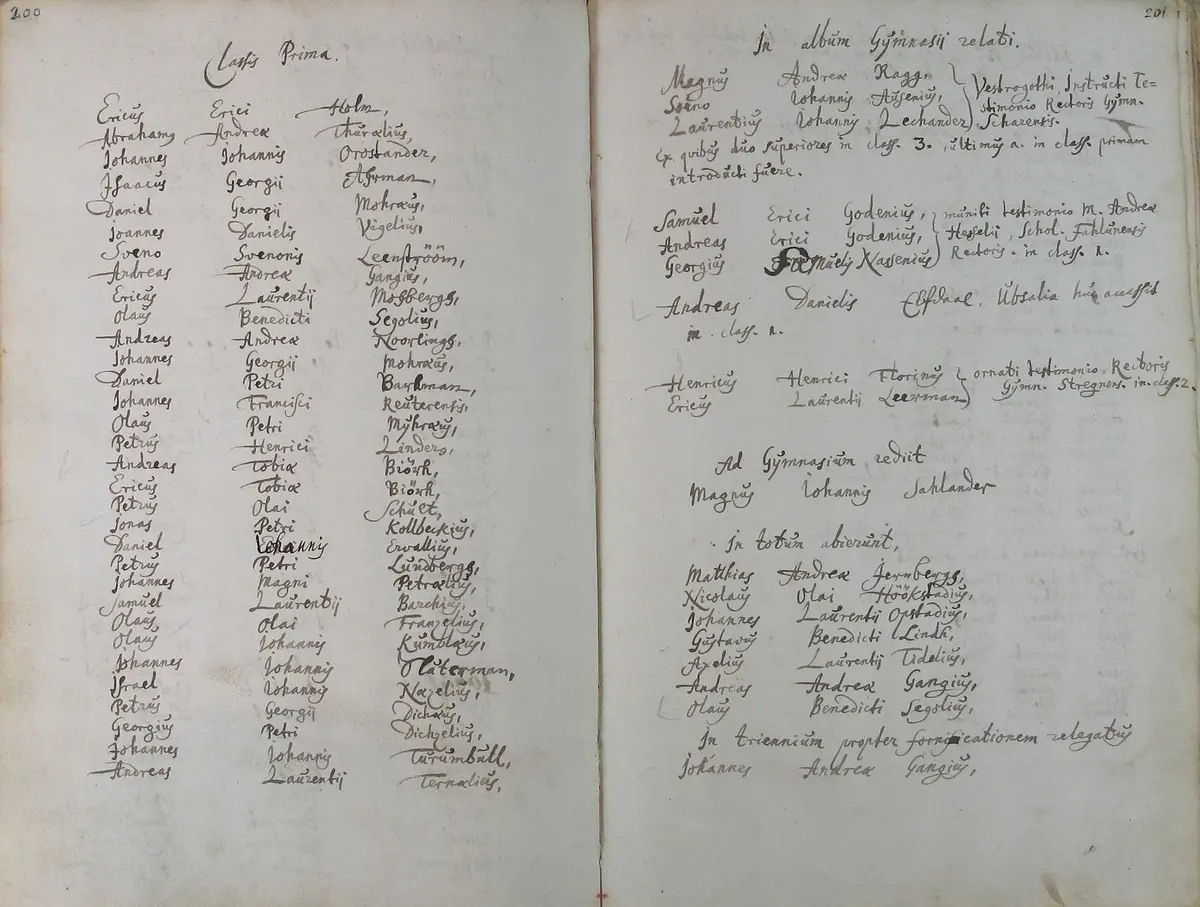 200
Classis Prima.
Ericus Erici Holm,
Abrahamus Andreæ Thuralius,
Iohannes Iohannis Orostander,
Isaacus Georgij Ahrman,
Daniel Georgij Mohræus,
Joannes Danielis Vigelius,
Sveno Svenonis Leenströöm,
Andreas Andreæ Gangius,
Ericus Laurentij Mosbergh,
Olaus Benedicti Segolius,
Andreas Andreæ Noorlingh,
Johannes Georgij Mohræus,
Daniel Petri Barkman,
Johannes Francisci Reuterensis,
Olaus Petri Myhræus,
Petrus Henrici Linders,
Andreas Tobiæ Biörk,
Ericus Tobiæ Biörk,
Petrus Olai Schult,
Jonas Petri Kollbeckius,
Daniel Iohannis Ervallius,
Petrus Petri Lundbergh,
Johannes Magni Petræius,
Samuel Laurentij Barchius,
Olaus Olai Franzelius,
Olaus Johannis Kumblæus,
Johannes Johannis Oluterman,
Israel Johannis Nazelius,
Petrus Georgij Dichæus,
Georgius Petri Dichzelius,
Johannes Johannis Turumbull,
Andreas Laurentij Ternælius,
201
In album Gymnasij relati.
Magnus Andreæ Ragg,
Sveno Iohannis Ausenius,
Laurentius Iohannis Lechander
Vestrogothi, Instructi Te=
stimonio Rectoris Gymn.
Scharensis.
Ex qvibus duo superiores in class. 3. ultimus a. in class. primam
introducti fuere.
Samuel Erici Godenius,
Andreas Erici Godenius,
Georgius Samuelis Nassenius
muniti testimonio M. Andreæ
Hesselij, Schol. Fahlunensis
Rectoris. in class. 1.
Andreas Danielis Elfdaal. Ubsalia huc accessit
in class. 1.
Henricus Henrici Florinus
Ericus Laurentij Leerman
ornati testimonio Rectoris
Gymn. Stregnens. in class. 2.
Ad Gymnasium rediit
Magnus Iohannis Sahlander
In totum abierunt,
Matthias Andreæ Jernbergh,
Nicolaus Olai Höökstadius,
Johannes Laurentii Opstadius,
Gustavus Benedicti Lindh,
Axelius Laurentij Tidelius,
Andreas Andreæ Gangius,
Olaus Benedicti Segolius,
In triennium propter fornicationem relegatus
Johannes Andreæ Gangius,